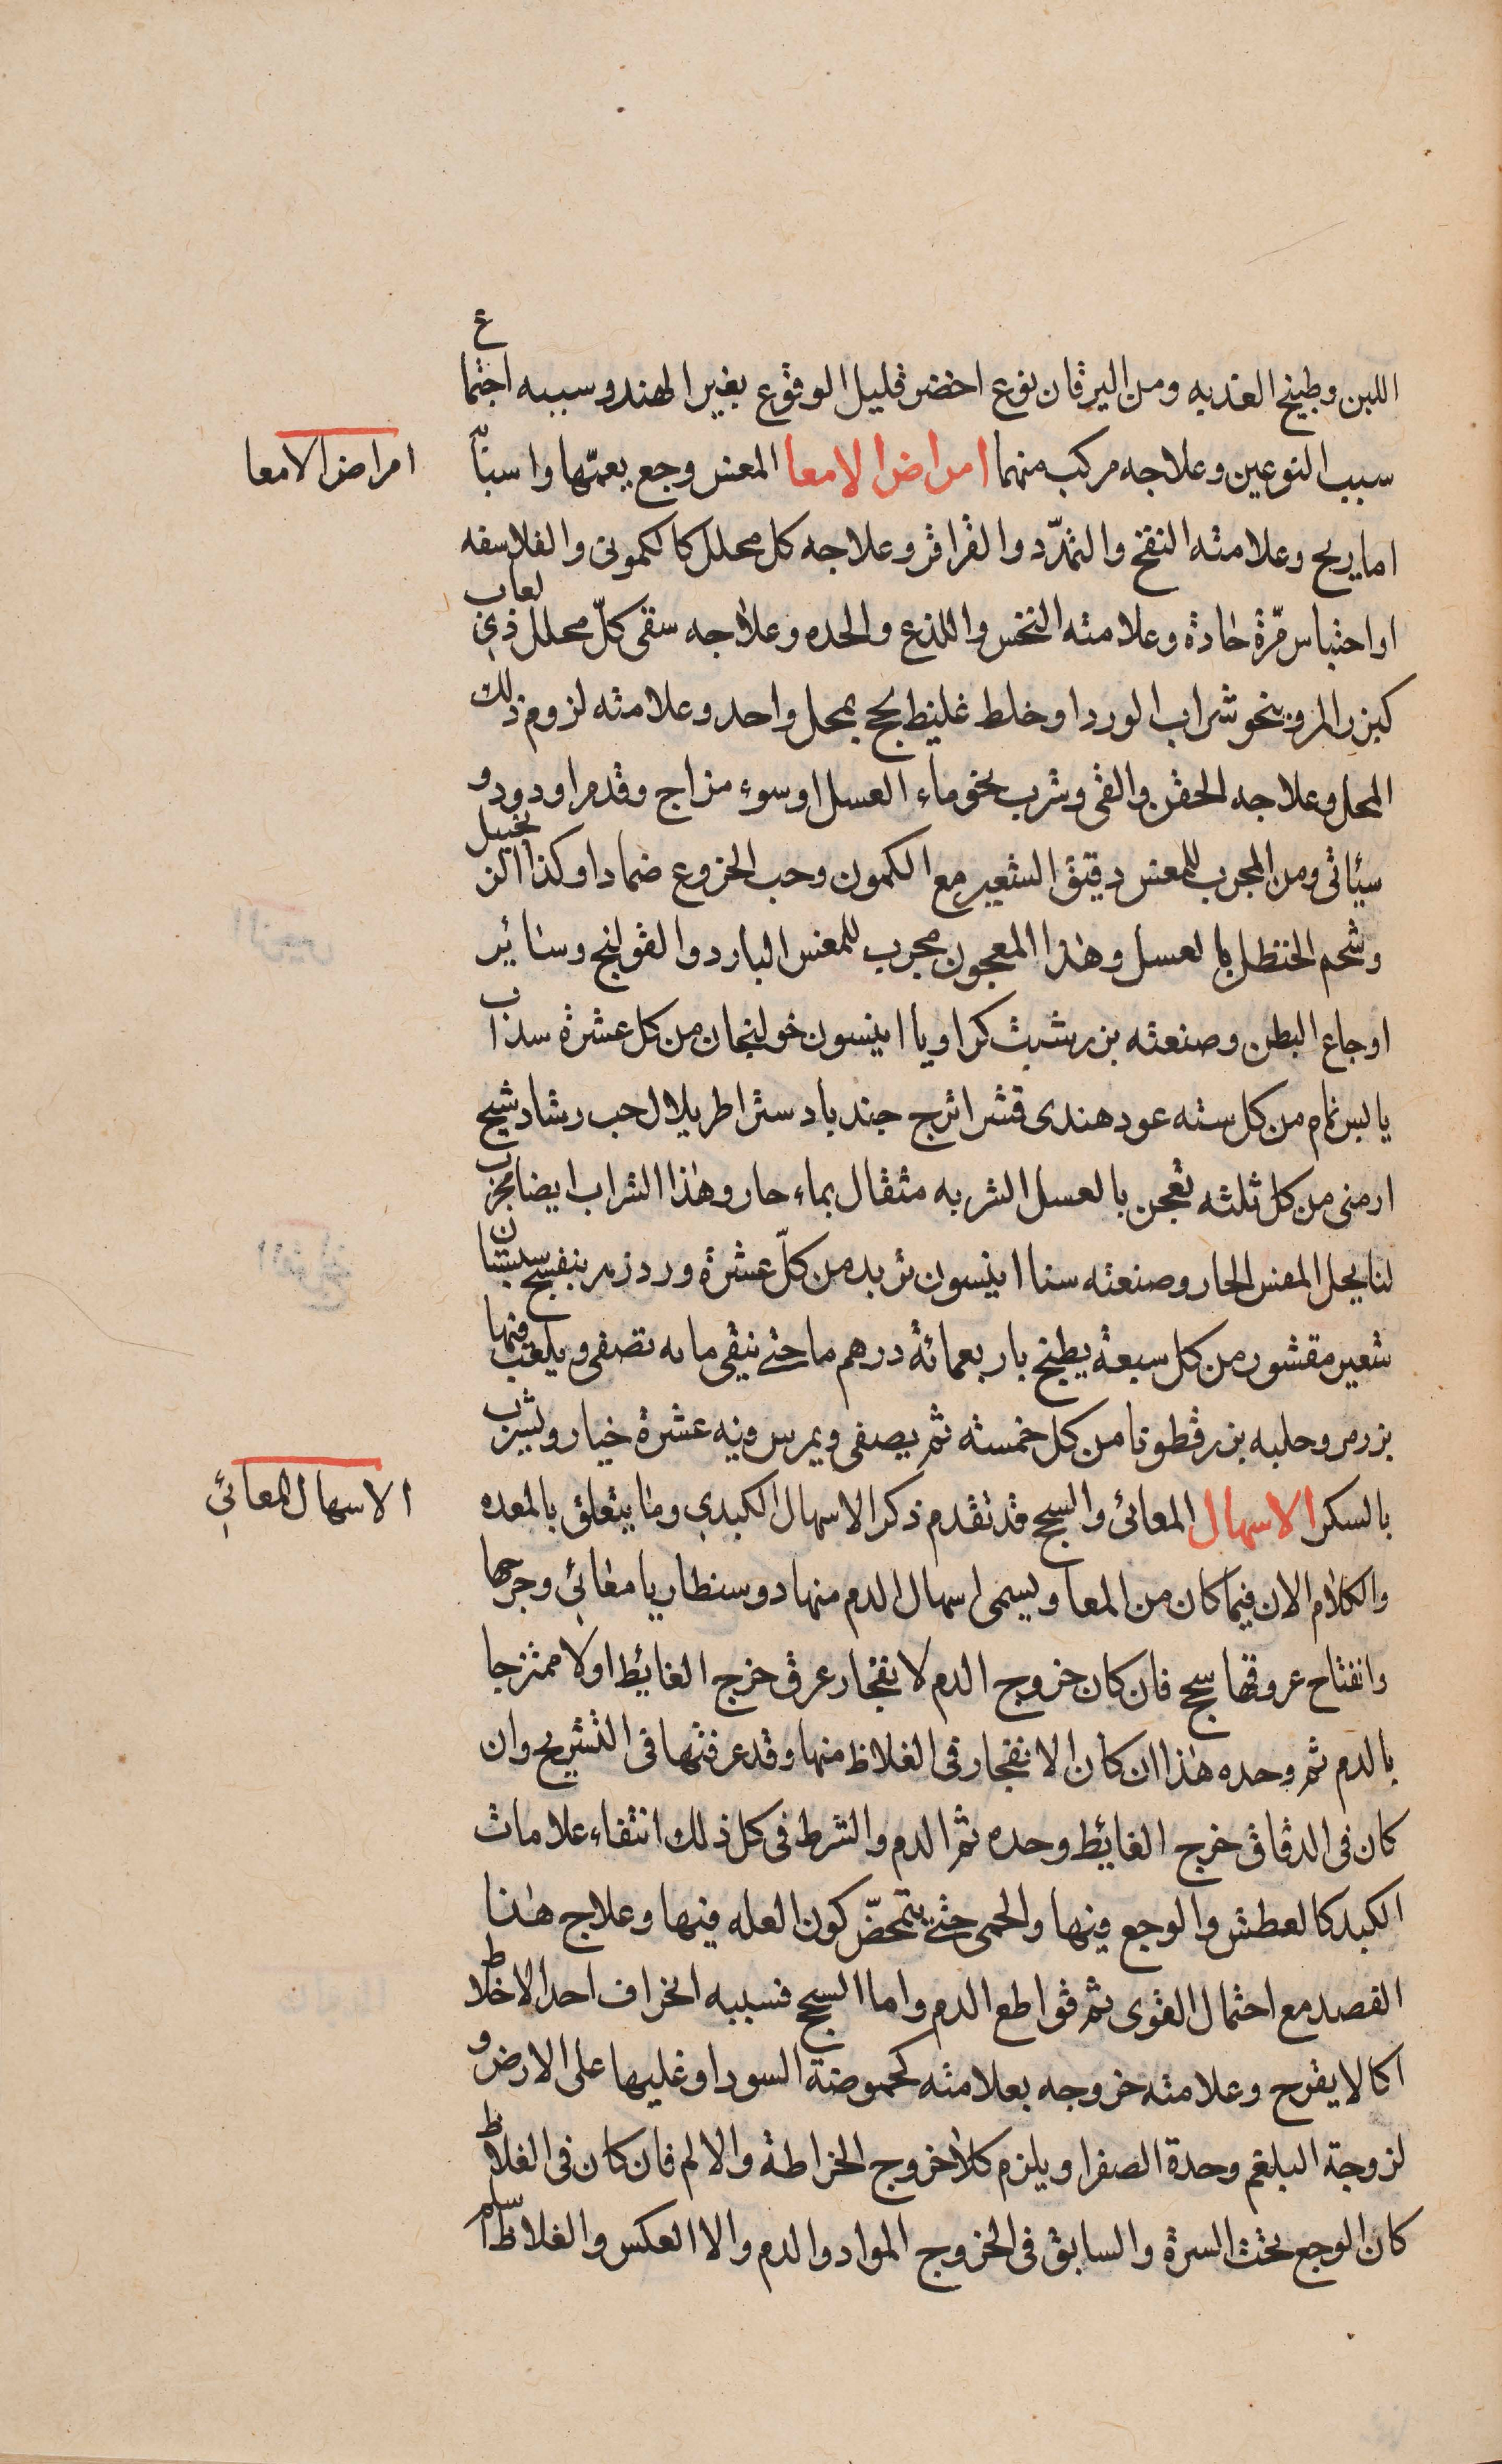 اللبن وطبيخ العذبه ومن اليرقان نوع اخضر قليل الوقوع بغير الهند وسببه اجتماع
امراض الامعا
سبب النوعين وعلاجه مركب منهما امراض الامعا المغس وجع يعمّها واسبابه
اما ريح وعلامته النفخ والتمدّد والقراقر وعلاجه كل محلل كالكمونى والفلاسفه
او احتباس مرّة حادة وعلامته النخس واللذع والحده وعلاجه سقى كلّ محلل ذى لعاب
كبزر المرو بنحو شراب الورد او خلط غليظ لحج بمحل واحد وعلامته لزوم ذلك
المحل وعلاجه الحقن والقى وشرب نحو ماء العسل او سوء مزاج وقدمر او دود و
سيأتى ومن المجرب للمغس دقيق الشعير مع الكمون وحب الخروع ضمادا وكذا الزنجبيل
وشحم الحنظل بالعسل وهذا المعجون مجرب للمغس البارد والقولنج وسائر
اوجاع البطن وصنعته بزر شبث كراويا انيسون خولنجان من كل عشرة سذاب
يابس نمام من كل سته عود هندى قشر اترج جندبادستر اطريلال حب رشاد شيح
ارمنى من كل ثلثه تعجن بالعسل الشربه مثقال بماء حار وهذا الشراب ايضا مجرب
لنا يحل المغس الحار وصنعته سنا انيسون تربد من كلّ عشرة ورد زهر بنفسج سبستان
شعير مقشور من كل سبعة يطبخ باربعمائة درهم ما حتى يبقى مايه تصفى ويلعب فيها
بزر مرو حلبه بزر قطونا من كل خمسته ثم يصفى ويمرس فيه عشرة خيار ويشرب
الاسهال المعائي
بالسكر الاسهال المعائى والسحج قد تقدم ذكر الاسهال الكبدي وما يتعلق بالمعده
والكلام الان فيما كان من المعا ويسمى اسهال الدم منها دوسنطاريا معائي وجرحها
وانفتاح عروقها سحج فان كان خروج الدم لانفجار عرق خرج الغائط اولا ممتزجا
بالدم ثم وحده هذا ان كان الانفجار فى الغلاظ منها وقد عرفتها فى التشريح وان
كان فى الدقاق خرج الغائط وحده ثم الدم والشرط فى كل ذلك انتفاء علامات
الكبد كالعطش والوجع فيها والحمى حتى يتمحضّ كون العله فيها وعلاج هذا
الفصد مع احتمال القوى ثم قواطع الدم واما السحج فسببه انحراف احد الاخلاط
اكالا يقرح وعلامته خروجه بعلامته كحموضة السودا وغليها على الارض و
لزوجة البلغم وحدة الصفرا ويلزم كلا خروج الخراطة والالم فان كان فى الغلاظ
كان الوجع تحت السرة والسابق فى الخروج المواد والدم والا العكس والغلاظ اسلم